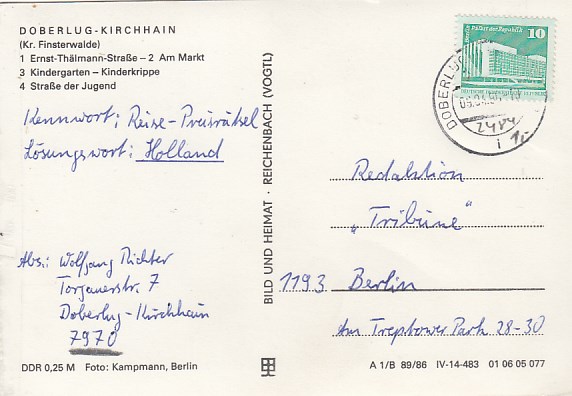 DOBERLUG-KIRCHHAIN
(Kr. Finsterwalde)
1 Ernst-Thälmann-Straße – 2 Am Markt
3 Kindergarten – Kinderkrippe
4 Straße der Jugend
Kennwort: Reise-Preisrätsel
Lösungswort: Holland
Abs.: Wolfgang Richter
Torgauerstr. 7
Doberlug-Kirchhain
7970
DDR 0,25 M Foto: Kampmann, Berlin
BILD UND HEIMAT · REICHENBACH (VOGTL)
Berlin, Palast der Republik 10
DOBERLUG
Redaktion
„Tribüne"
1193 Berlin
Am Treptower Park 28-30
A 1/B 89/86 IV-14-483 01 06 05 077